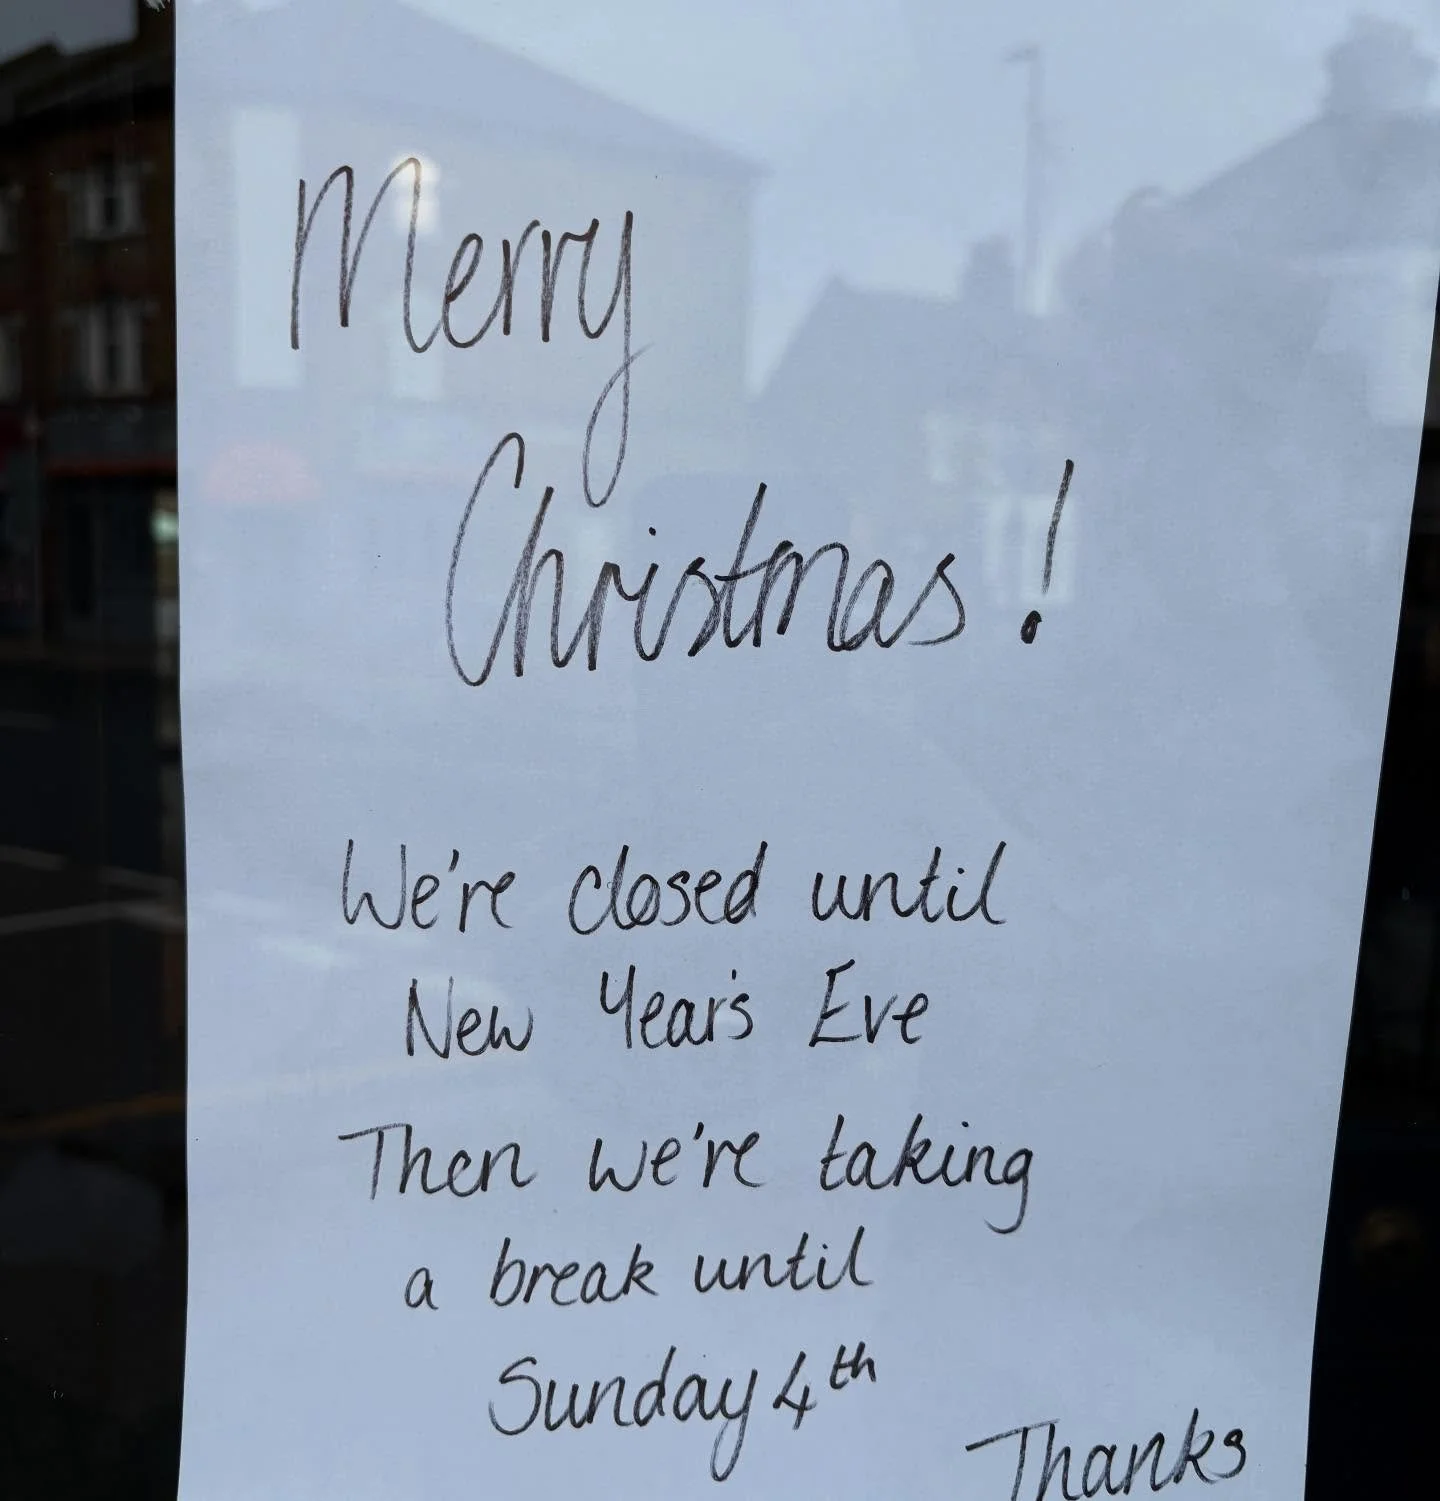 Merry
Christmas!
We're closed until
New Year's Eve
Then we're taking
a break until
Sunday 4th
Thanks